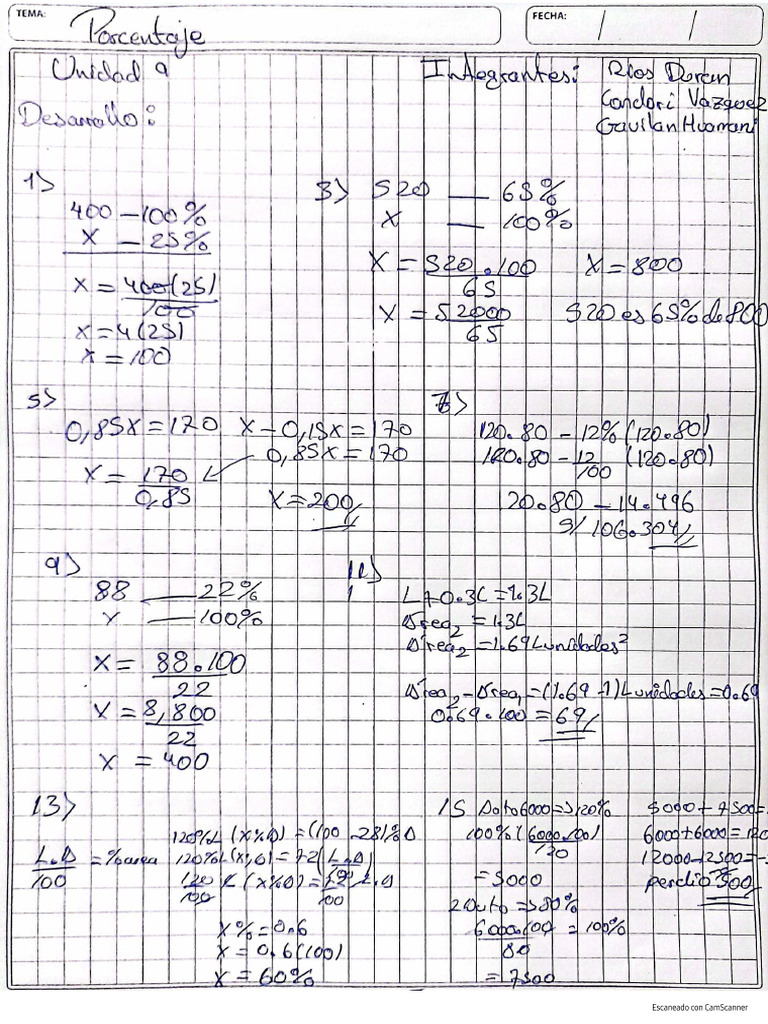 TEMA:
Porcentaje
FECHA: / /
Unidad 9
Integrantes: Rios Duran
Candori Vazquez
Gavilan Huamani
Desarrollo:
1>
400 — 100%
X — 25%
X = 400(25)
100
X = 4(25)
X = 100
3> 520 — 65%
X — 100%
X = 520.100
65
X = 800
X = 52000
65
520 es 65% de 800
5>
0,85X = 170
X = 170
0,85
X - 0,15X = 170
0,85X = 170
X = 200
7>
120.80 - 12% (120.80)
120.80 - 12 (120.80)
100
20.80 - 14.496
S/ 106.304
9>
88 — 22%
X — 100%
X = 88.100
22
X = 8,800
22
X = 400
11>
L + 0.3L = 1.3L
Area2 = 1.3L
Area2 = 1.69L unidades²
Area2 - Area1 = (1.69 - 1)L unidades = 0.69
0.69.100 = 69
13>
L.A = % area
100
120%L (X%A) = (100 - 28)% A
120%L (X%A) = 72 (L.A)
120 L (X%A) = 72 L.A
100 100
X% = 0.6
X = 0.6(100)
X = 60%
15 Auto 6000 => 120%
100% (6000.100)
120
= 5000
2 Auto => 80%
6000.100 = 100%
80
= 7500
5000 + 7500 =
6000 + 6000 = 120
12000 - 12500 = -
perdio 500
Escaneado con CamScanner